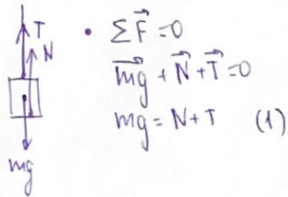 T
N
mg
• ΣF⃗=0
m⃗g + N⃗ + T⃗ = 0
mg = N+T (1)